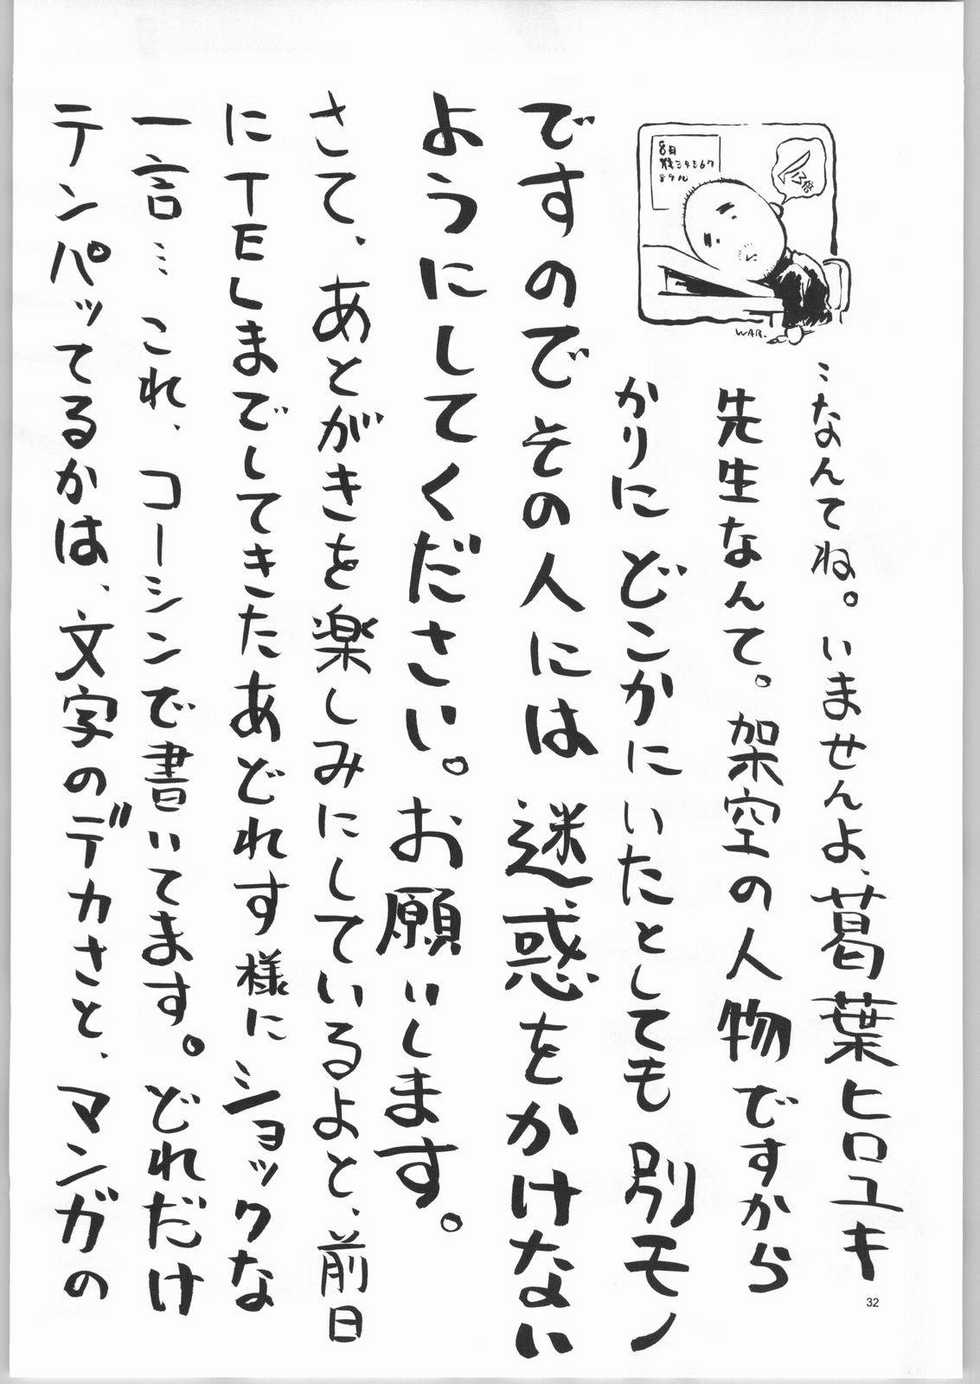 …なんてね。いませんよ、葛葉ヒロユキ
先生なんて。架空の人物ですから
かりにどこかにいたとしても別モン
ですのでその人には迷惑をかけない
ようにしてください。お願いします。
さて、あとがきを楽しみにしているよと、前日
にTELまでしてきたあどれす様にショックな
一言…これ、コーシンで書いてます。どれだけ
テンパッてるかは、文字のデカさと、マンガの
8日
WAR.
32